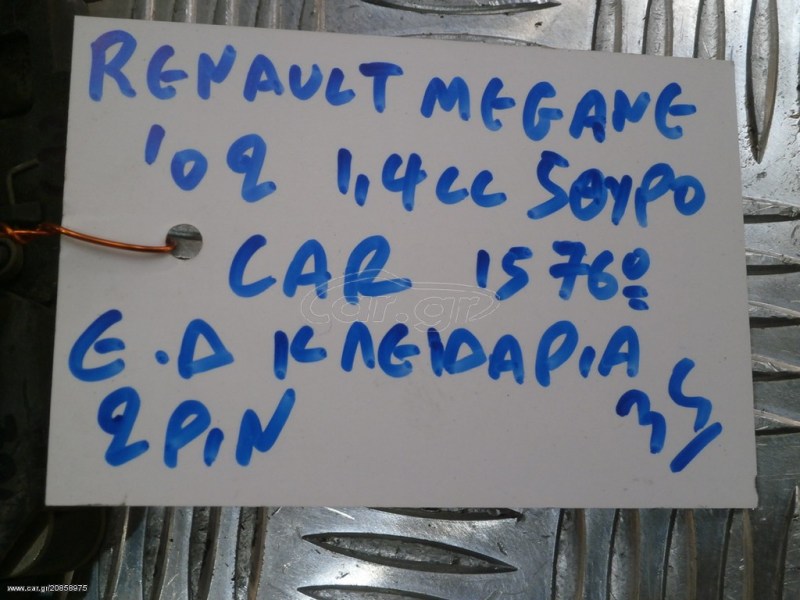 RENAULT MEGANE
'02 1,4cc 5ΘΥΡΟ
CAR 1576º
Ε.Δ ΚΛΕΙΔΑΡΙΑ
2 PIN
car.gr
www.car.gr/20858975